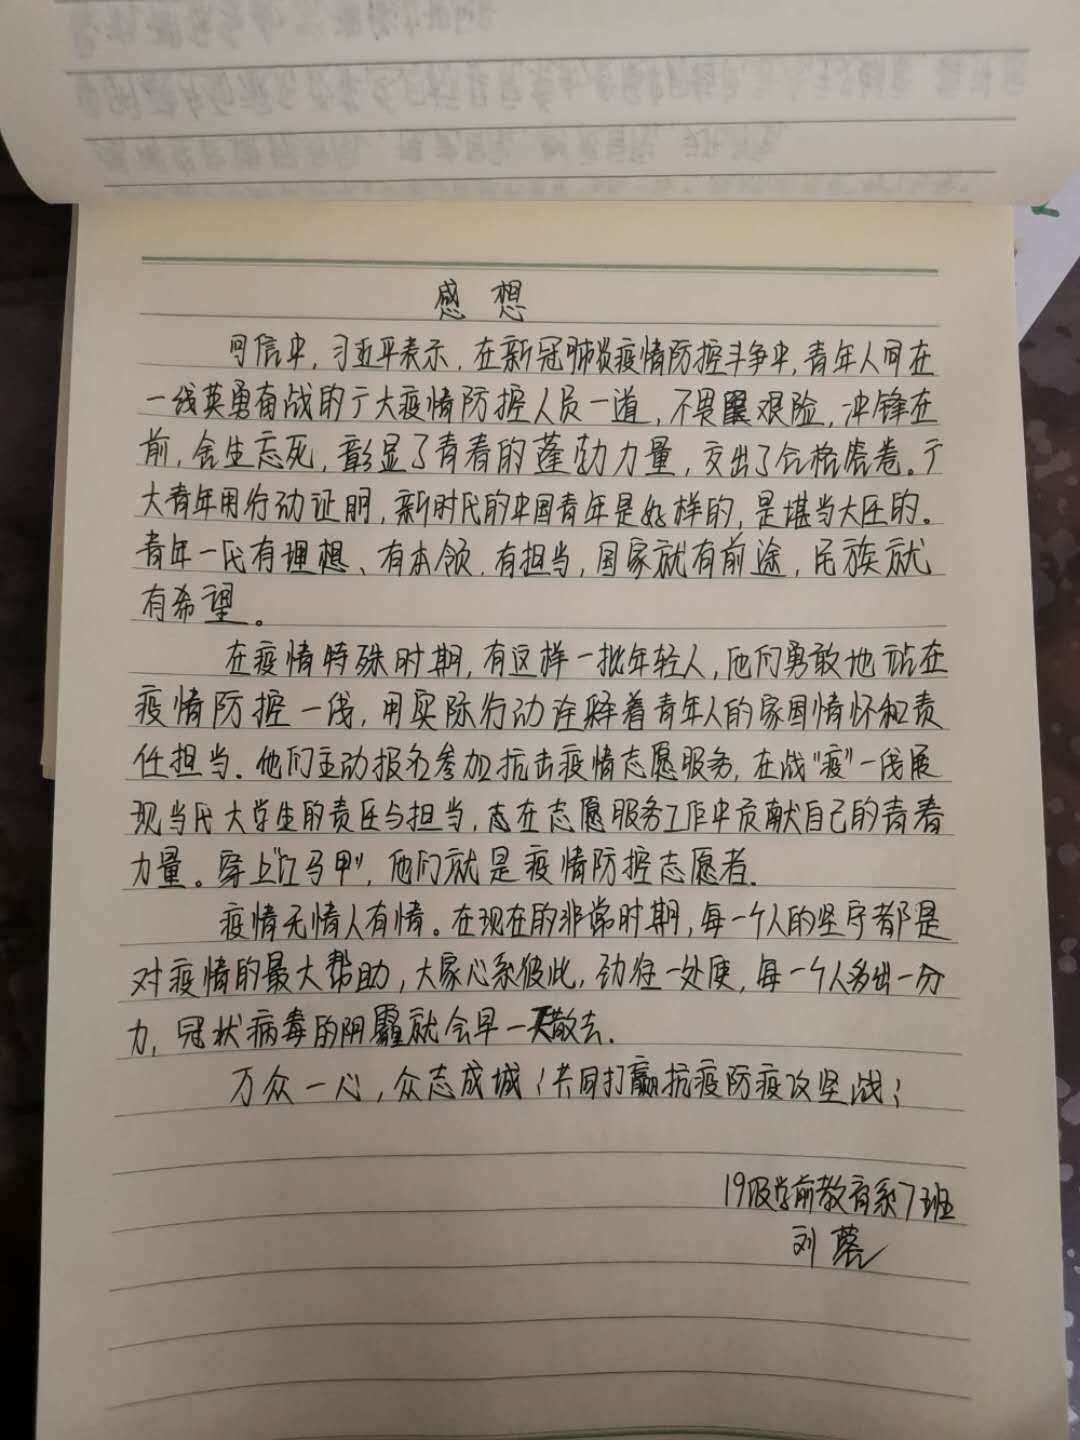 感想
回信中,习近平表示,在新冠肺炎疫情防控斗争中,青年人同在
一线英勇奋战的广大疫情防控人员一道,不畏艰险,冲锋在
前,舍生忘死,彰显了青春的蓬勃力量,交出了合格答卷。广
大青年用行动证明,新时代的中国青年是好样的,是堪当大任的。
青年一代有理想、有本领,有担当,国家就有前途,民族就
有希望。
在疫情特殊时期,有这样一批年轻人,他们勇敢地站在
疫情防控一线,用实际行动诠释着青年人的家国情怀和责
任担当.他们主动报名参加抗击疫情志愿服务,在战"疫"一线展
现当代大学生的责任与担当,志在志愿服务工作中贡献自己的青春
力量。穿上"红马甲",他们就是疫情防控志愿者.
疫情无情人有情。在现在的非常时期,每一个人的坚守都是
对疫情的最大帮助,大家心系彼此,劲往一处使,每一个人多出一分
力,冠状病毒的阴霾就会早一天散去.
万众一心,众志成城!共同打赢抗疫防疫攻坚战!
19级学前教育系7班
刘蓉